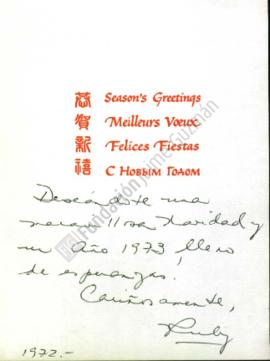 恭賀新禧
Season's Greetings
Meilleurs Vœux
Felices Fiestas
С Новым Годом
Deseándote una
maravillosa Navidad y
un Año 1973 lleno
de esperanzas!
Cariñosamente,
Ruby
1972.-
Fundación Jaime Guzmán